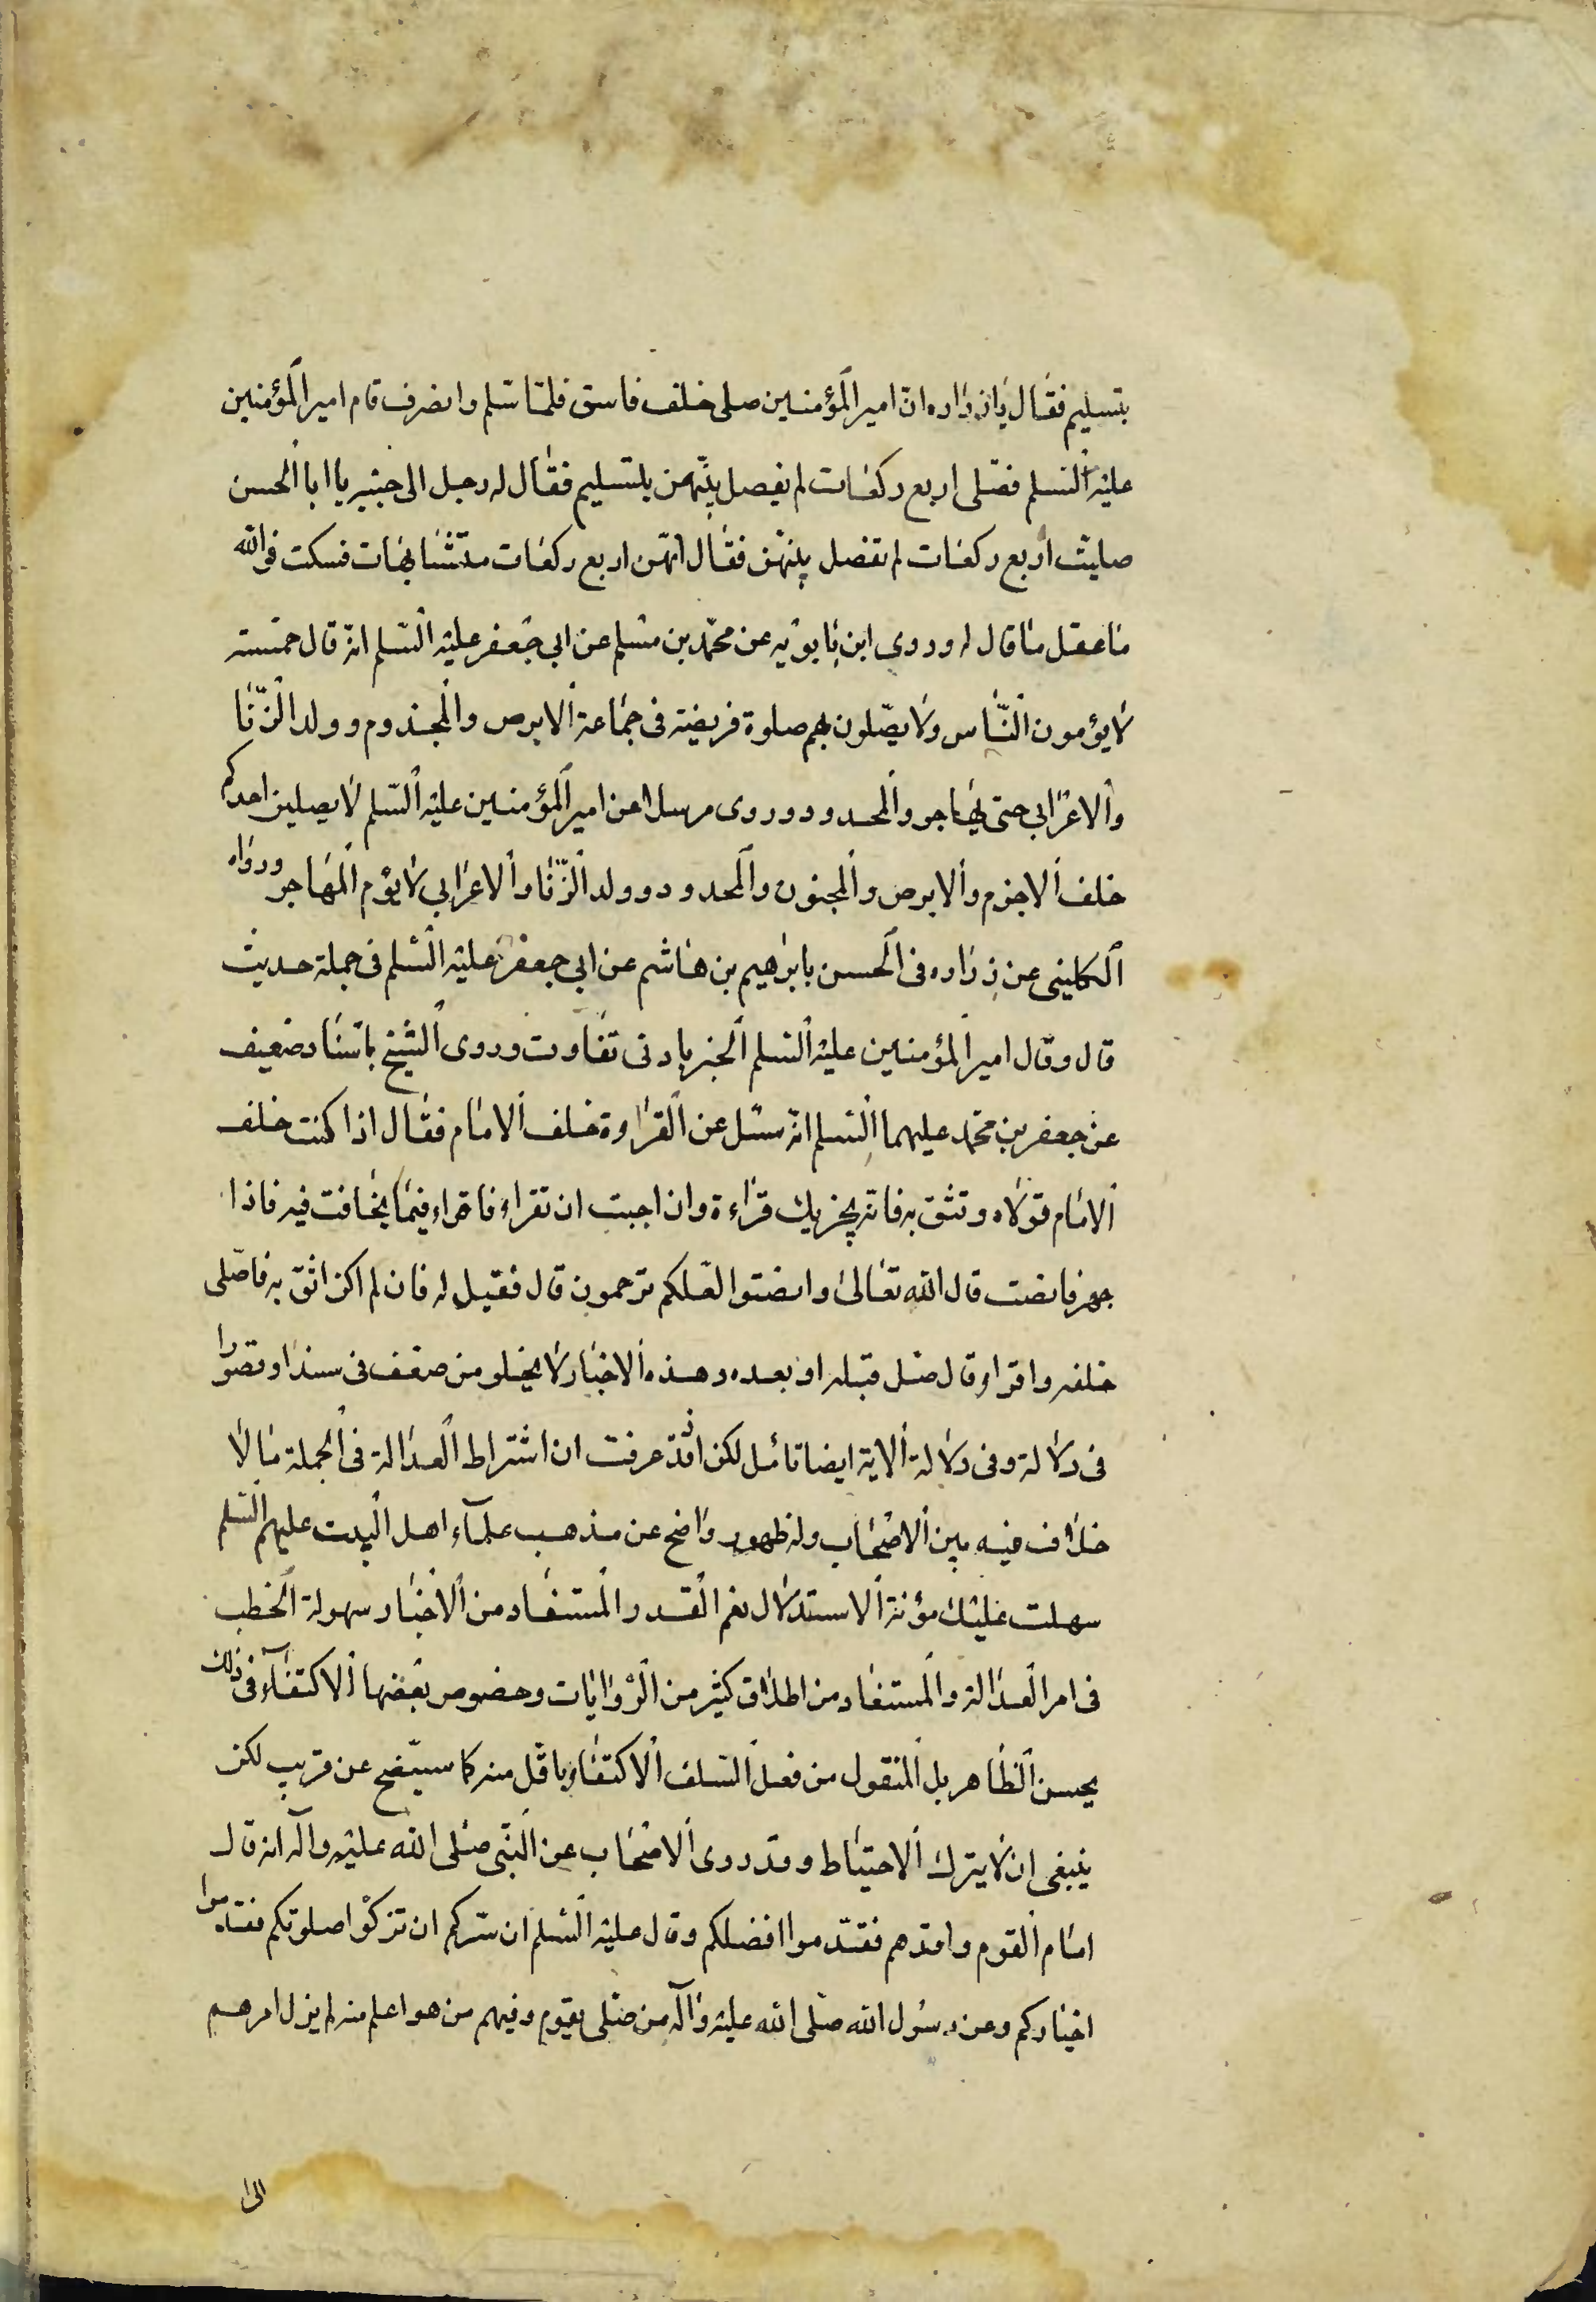 بتسليم فقال يا زراره ان امير المؤمنين صلى خلف فاسق فلمّا سلم وانصرف قام امير المؤمنين
عليه السلم فصلى اربع ركعات لم يفصل بينهن بتسليم فقال له رجل الى جنبه يا ابا الحسن
صليت اربع ركعات لم تفصل بينهن فقال انهن اربع ركعات مشبهات فسكت فوالله
ما عقل ما قال له وروى ابن بابويه عن محمد بن مسلم عن ابي جعفر عليه السلم انه قال خمسة
لا يؤمون الناس ولا يصلون بهم صلوة فريضة فى جماعة الابرص والمجذوم وولد الزنا
والاعرابي حتى يهاجر والمحدود وروى مرسلا عن امير المؤمنين عليه السلم لا يصلين احدكم
خلف الاجذم والابرص والمجنون والمحدود وولد الزنا والاعرابي لا يؤم المهاجر ورواه
الكلينى عن زراره فى الحسن بابرهيم بن هاشم عن ابي جعفر عليه السلم فى جملة حديث
قال وقال امير المؤمنين عليه السلم الخبر بادنى تفاوت وروى الشيخ باسناد ضعيف
عن جعفر بن محمد عليهما السلم انه سئل عن القراوة خلف الامام فقال اذا كنت خلف
الامام تولاه وتثق به فانه يجزيك قراءة وان احببت ان تقراء فاقراء فيما يخافت فيه فاذا
جهر فانصت قال الله تعالى وانصتوا لعلكم ترحمون قال فقيل له فان لم اكن اثق به فاصلى
خلفه واقراو قال صل قبله او بعده وهذه الاخبار لا يخلو من ضعف فى سند او قصورا
فى دلالة وفى دلالة الاية ايضا تامل لكن اذ قد عرفت ان اشتراط العدالة فى الجملة مما لا
خلاف فيه بين الاصحاب وله ظهور واضح عن مذهب علماء اهل البيت عليهم السلم
سهلت عليك مؤنة الاستدلال نعم القدر المستفاد من الاخبار سهولة الخطب
فى امر العدالة والمستفاد من اطلاق كثير من الروايات وخصوص بعضها الاكتفاء فى ذلك
بحسن الظاهر بل المنقول من فعل السلف الاكتفاء باقل منه كما سيتضح عن قريب لكن
ينبغى ان لا يترك الاحتياط وقد روى الاصحاب عن النبى صلى الله عليه وآله انه قال
امام القوم وافدهم فقدموا افضلكم وقال عليه السلم ان سركم ان تزكوا صلوتكم فقدموا
اخياركم وعن رسول الله صلى الله عليه وآله من صلى بقوم وفيهم من هو اعلم منه لم يزل امرهم
الى